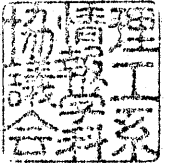 理工系
情報学科
協議会